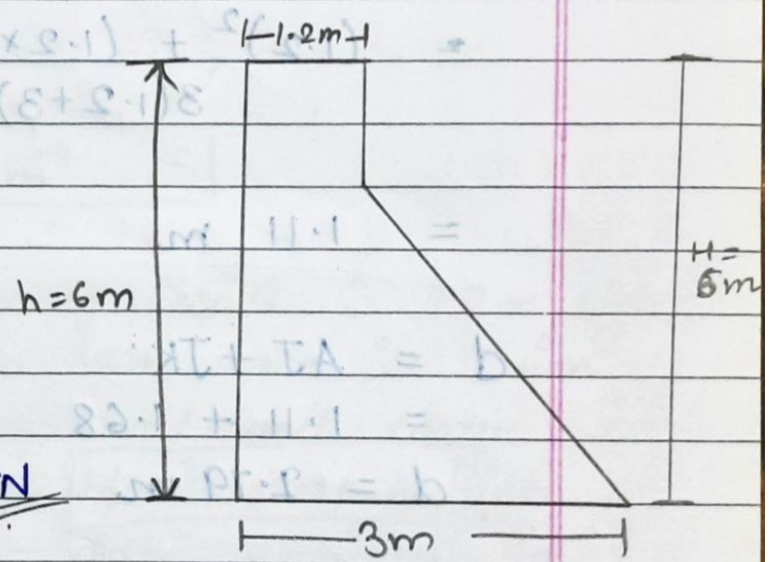 1.2m
h=6m
H=
6m
N
3m